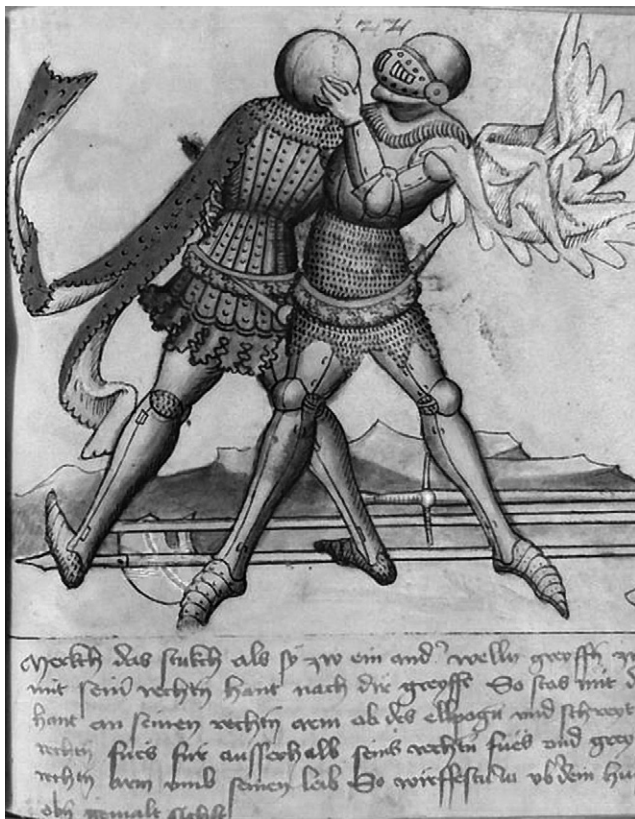 Merckh das stukch als sy zw ein and' welln greyffn
mit sein' rechtn hant nach dir greyff So stos mit
hant an seinen rechtn arm ob des ellpogn vnd schreyt
rechtn fües für ausserhalb seins rechtn fües vnd grey
rechtn arm vmb seinen leib So wirffestu in vb' dein hu
obn gemalt sichst